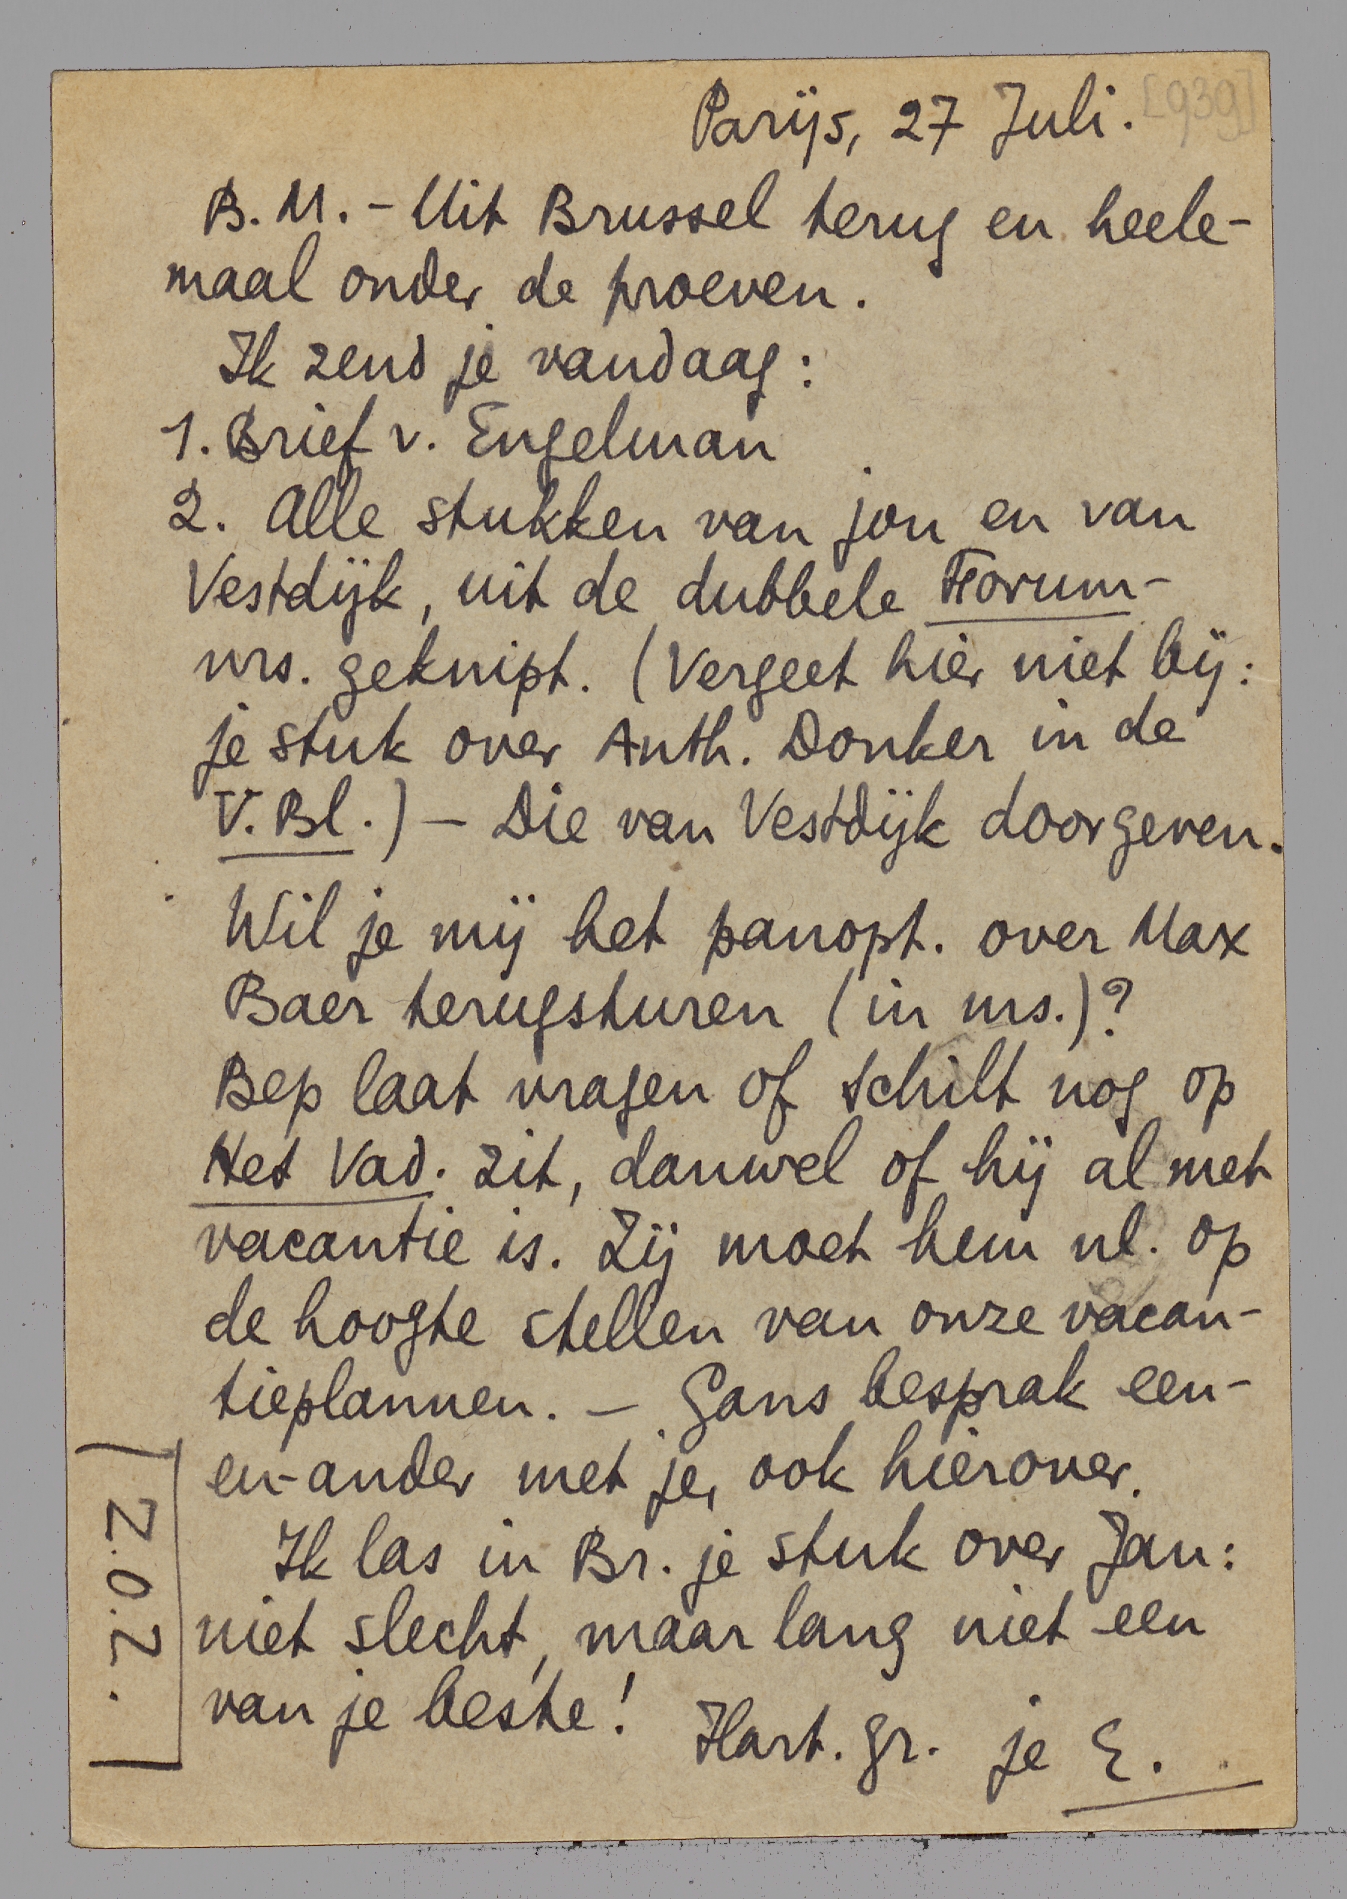 Parijs, 27 Juli. [939]
B.M. - Uit Brussel terug en heele-
maal onder de proeven.
Ik zend je vandaag:
1. Brief v. Engelman
2. Alle stukken van jou en van
Vestdijk, uit de dubbele Forum-
nrs. geknipt. (Vergeet hier niet bij:
je stuk over Anth. Donker in de
V. Bl.) - Die van Vestdijk doorgeven.
Wil je mij het panopt. over Max
Baer terugsturen (in ms.)?
Bep laat vragen of Schilt nog op
Het Vad. zit, danwel of hij al met
vacantie is. Zij moet hem nl. op
de hoogte stellen van onze vacan-
tieplannen. - Gans besprak een-
en-ander met je, ook hierover.
Ik las in Br. je stuk over Jan:
niet slecht, maar lang niet een
van je beste!
Hart. gr. je E.
Z.O.Z.